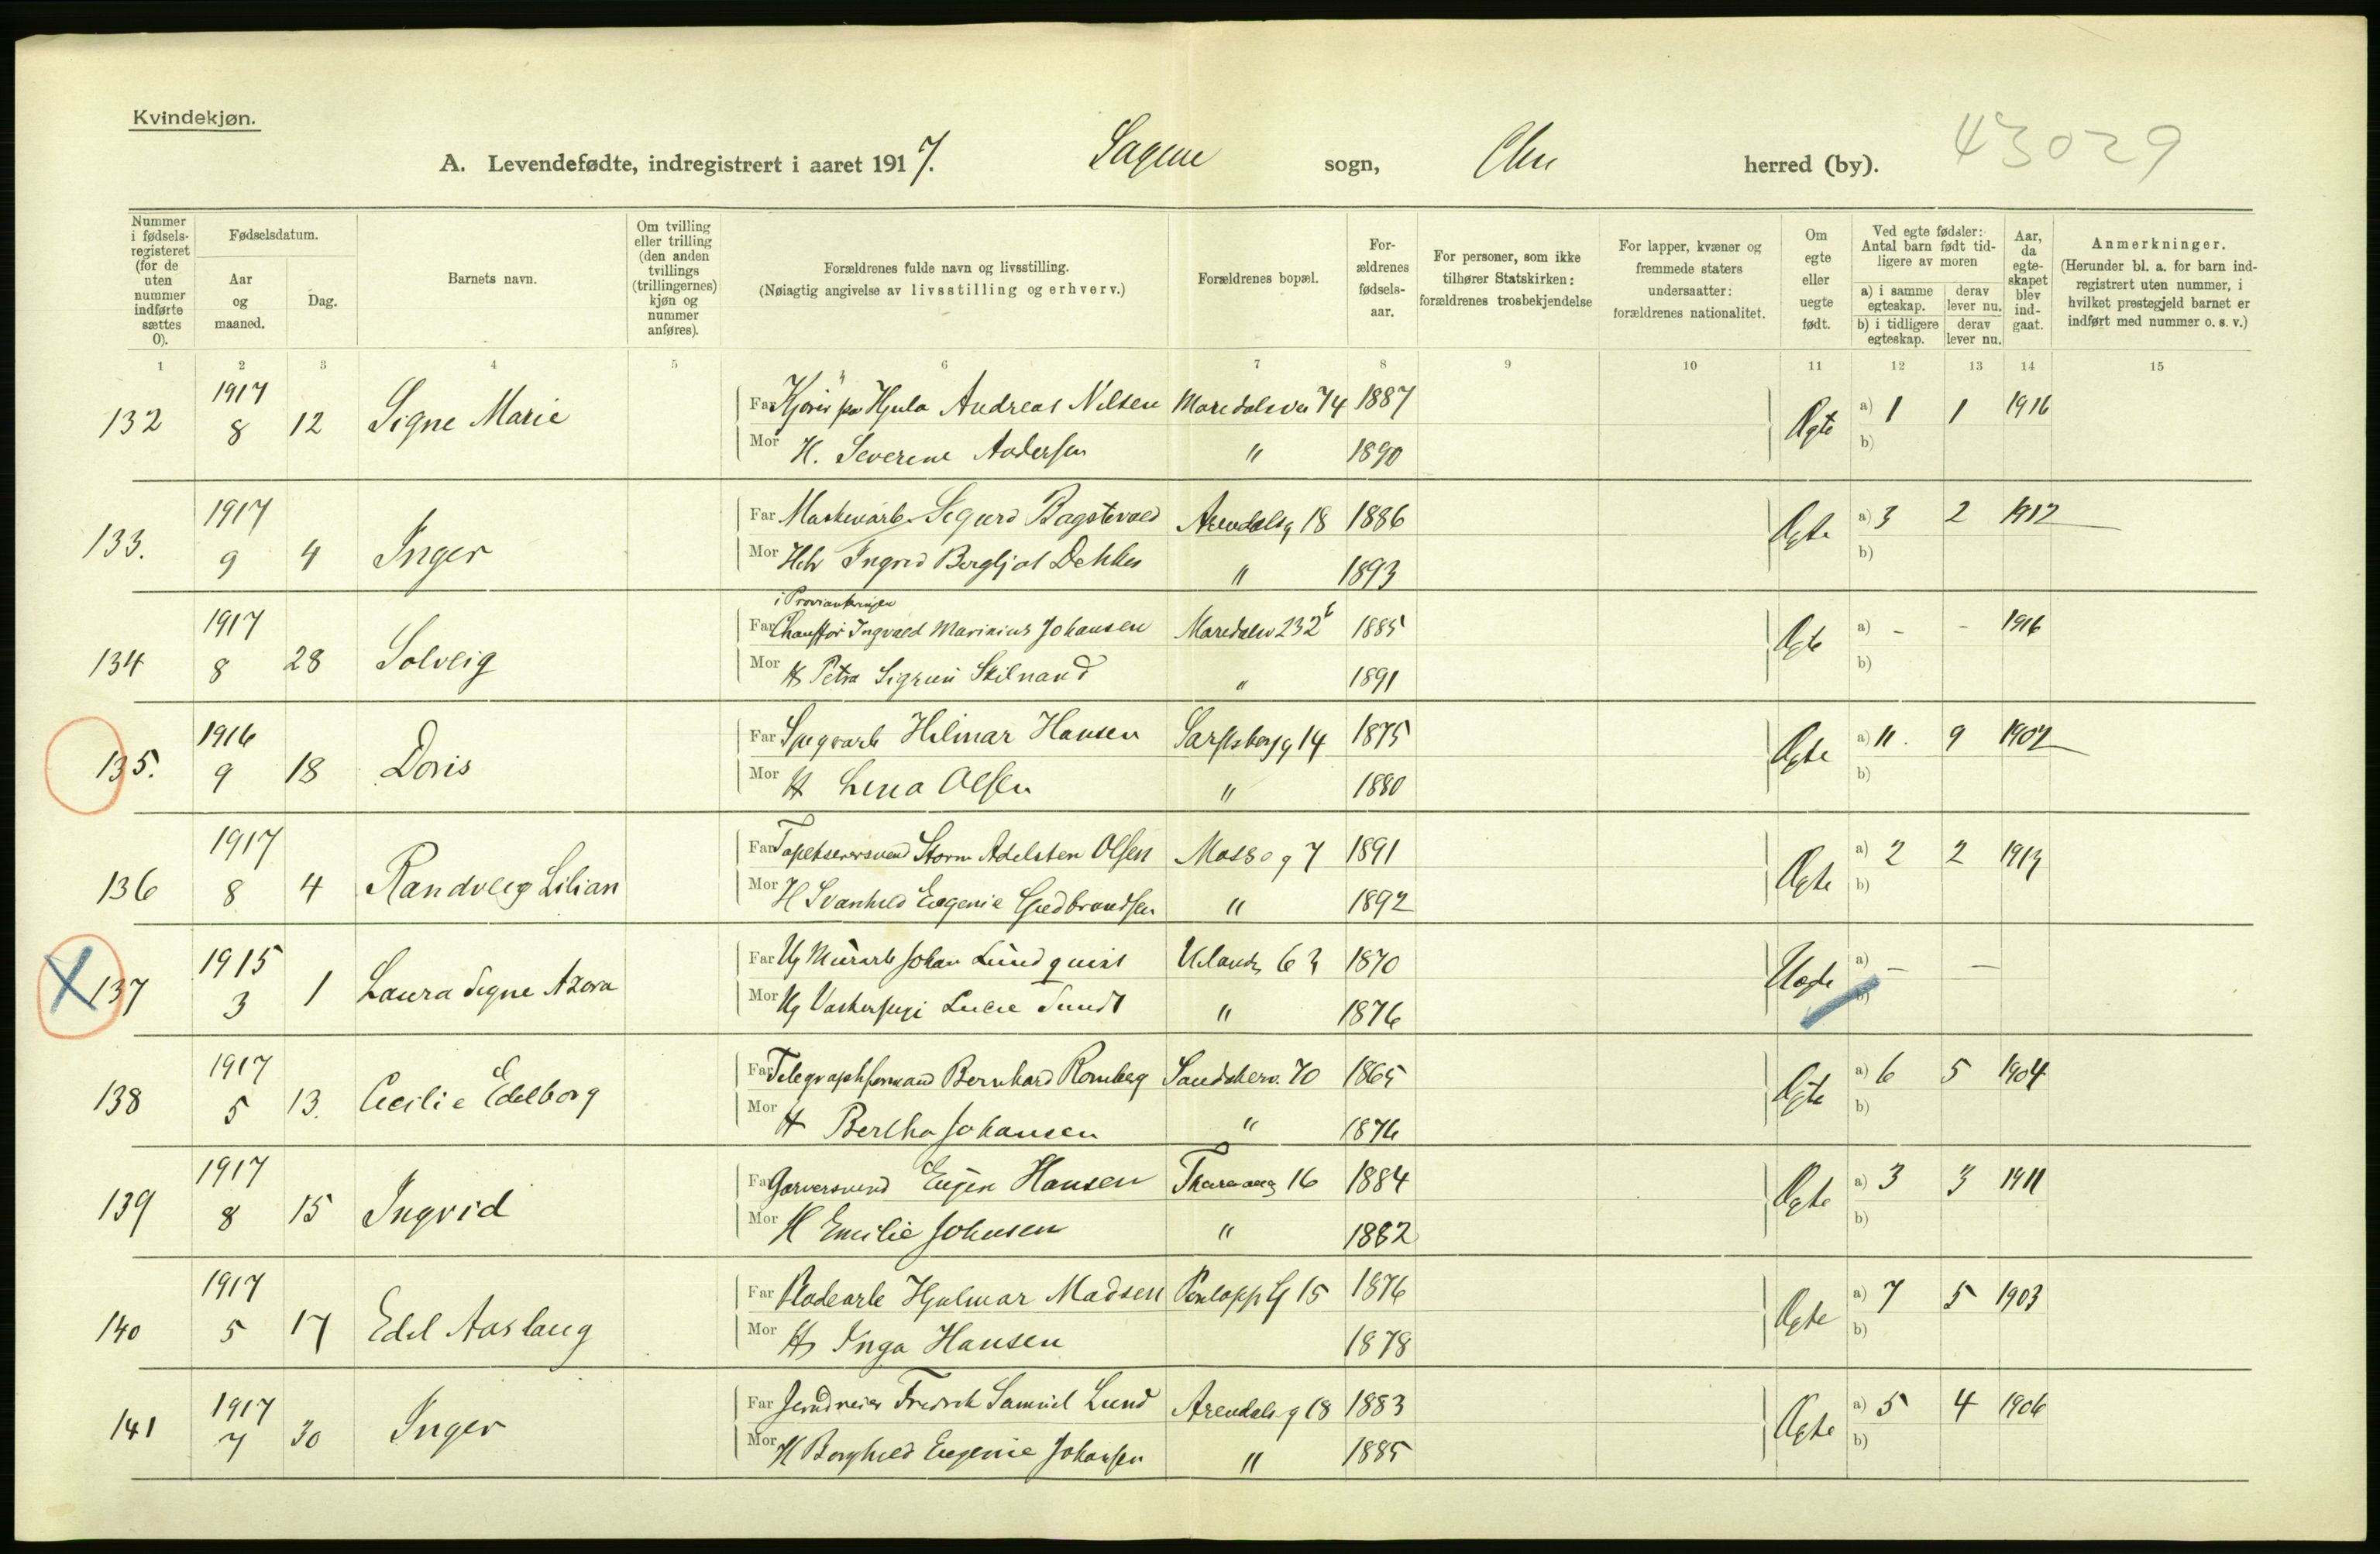 Kvindekjøn.
A. Levendefødte, indregistrert i aaret 1917. Sagene sogn, Chra herred (by). 43029
Nummer i fødselsregisteret (for de uten nummer indførte sættes 0).
Fødselsdatum.
Aar og maaned.
Dag.
Barnets navn.
Om tvilling eller trilling (den anden tvillings (trillingernes) kjøn og nummer anføres).
Forældrenes fulde navn og livsstilling.
(Nøiagtig angivelse av livsstilling og erhverv.)
Forældrenes bopæl.
Forældrenes fødselsaar.
For personer, som ikke tilhører Statskirken: forældrenes trosbekjendelse
For lapper, kvæner og fremmede staters undersaatter: forældrenes nationalitet.
Om egte eller uegte født.
Ved egte fødsler: Antal barn født tidligere av moren
a) i samme egteskap.
derav lever nu.
b) i tidligere egteskap.
derav lever nu.
Aar, da egteskapet blev indgaat.
Anmerkninger.
(Herunder bl. a. for barn indregistrert uten nummer, i hvilket prestegjeld barnet er indført med nummer o. s. v.)
1 2 3 4 5 6 7 8 9 10 11 12 13 14 15
132 1917 8 12 Signe Marie Far Andreas Nilsen Maridalsvei 74 1887 Egte a) 1 1 1916
Mor H. Severine Andersen " 1890 b)
133. 1917 9 4 Inger Far Maskinarb. Sigurd Bagstevold Arendalsg 18 1886 Egte a) 3 2 1912
Mor Ingrid Bergljot " 1893 b)
i Provianteringen
134 1917 8 28 Solveig Far Chauffør Ingvald Marinius Johansen Maridalsv 232 b 1885 Egte a) - - 1916
Mor H Petra Sigrun Skilnand " 1891 b)
135. 1916 9 18 Doris Far Hilmar Hansen Sarpsborgg 14 1875 Egte a) 11. 9 1902
Mor H Lina Olsen " 1880 b)
136 1917 8 4 Randveig Lilian Far Tapetserersvend Storm Adelsten Olsen Mosseg 7 1891 Egte a) 2 2 1913
Mor H Svanhild Eugenie Gudbrandsen " 1892 b)
X 137 1915 3 1 Laura Signe Azora Far Ug Murarb Johan Lundquist Uelandsg 63 1870 Uegte a) - -
Mor Ug Vaskerpige Lucie Sundt " 1876 b)
138 1917 5 13. Cecilie Edelborg Far Telegrafformand Bernhard Romberg Sandakerv. 70 1865 Egte a) 6 5 1904
Mor H Bertha Johansen " 1876 b)
139 1917 8 15 Ingrid Far Garversvend Eugen Hansen 16 1884 Egte a) 3 3 1911
Mor H Emilie Johnsen " 1882 b)
140 1917 5 17 Edel Aaslaug Far Hjalmar Madsen 15 1876 Egte a) 7 5 1903
Mor H Inga Hansen 1878 b)
141 1917 7 30 Inger Far Samuel Lund Arendalsg 18 1883 Egte a) 5 4 1906
Mor H Borghild Eugenie Johansen " 1885 b)